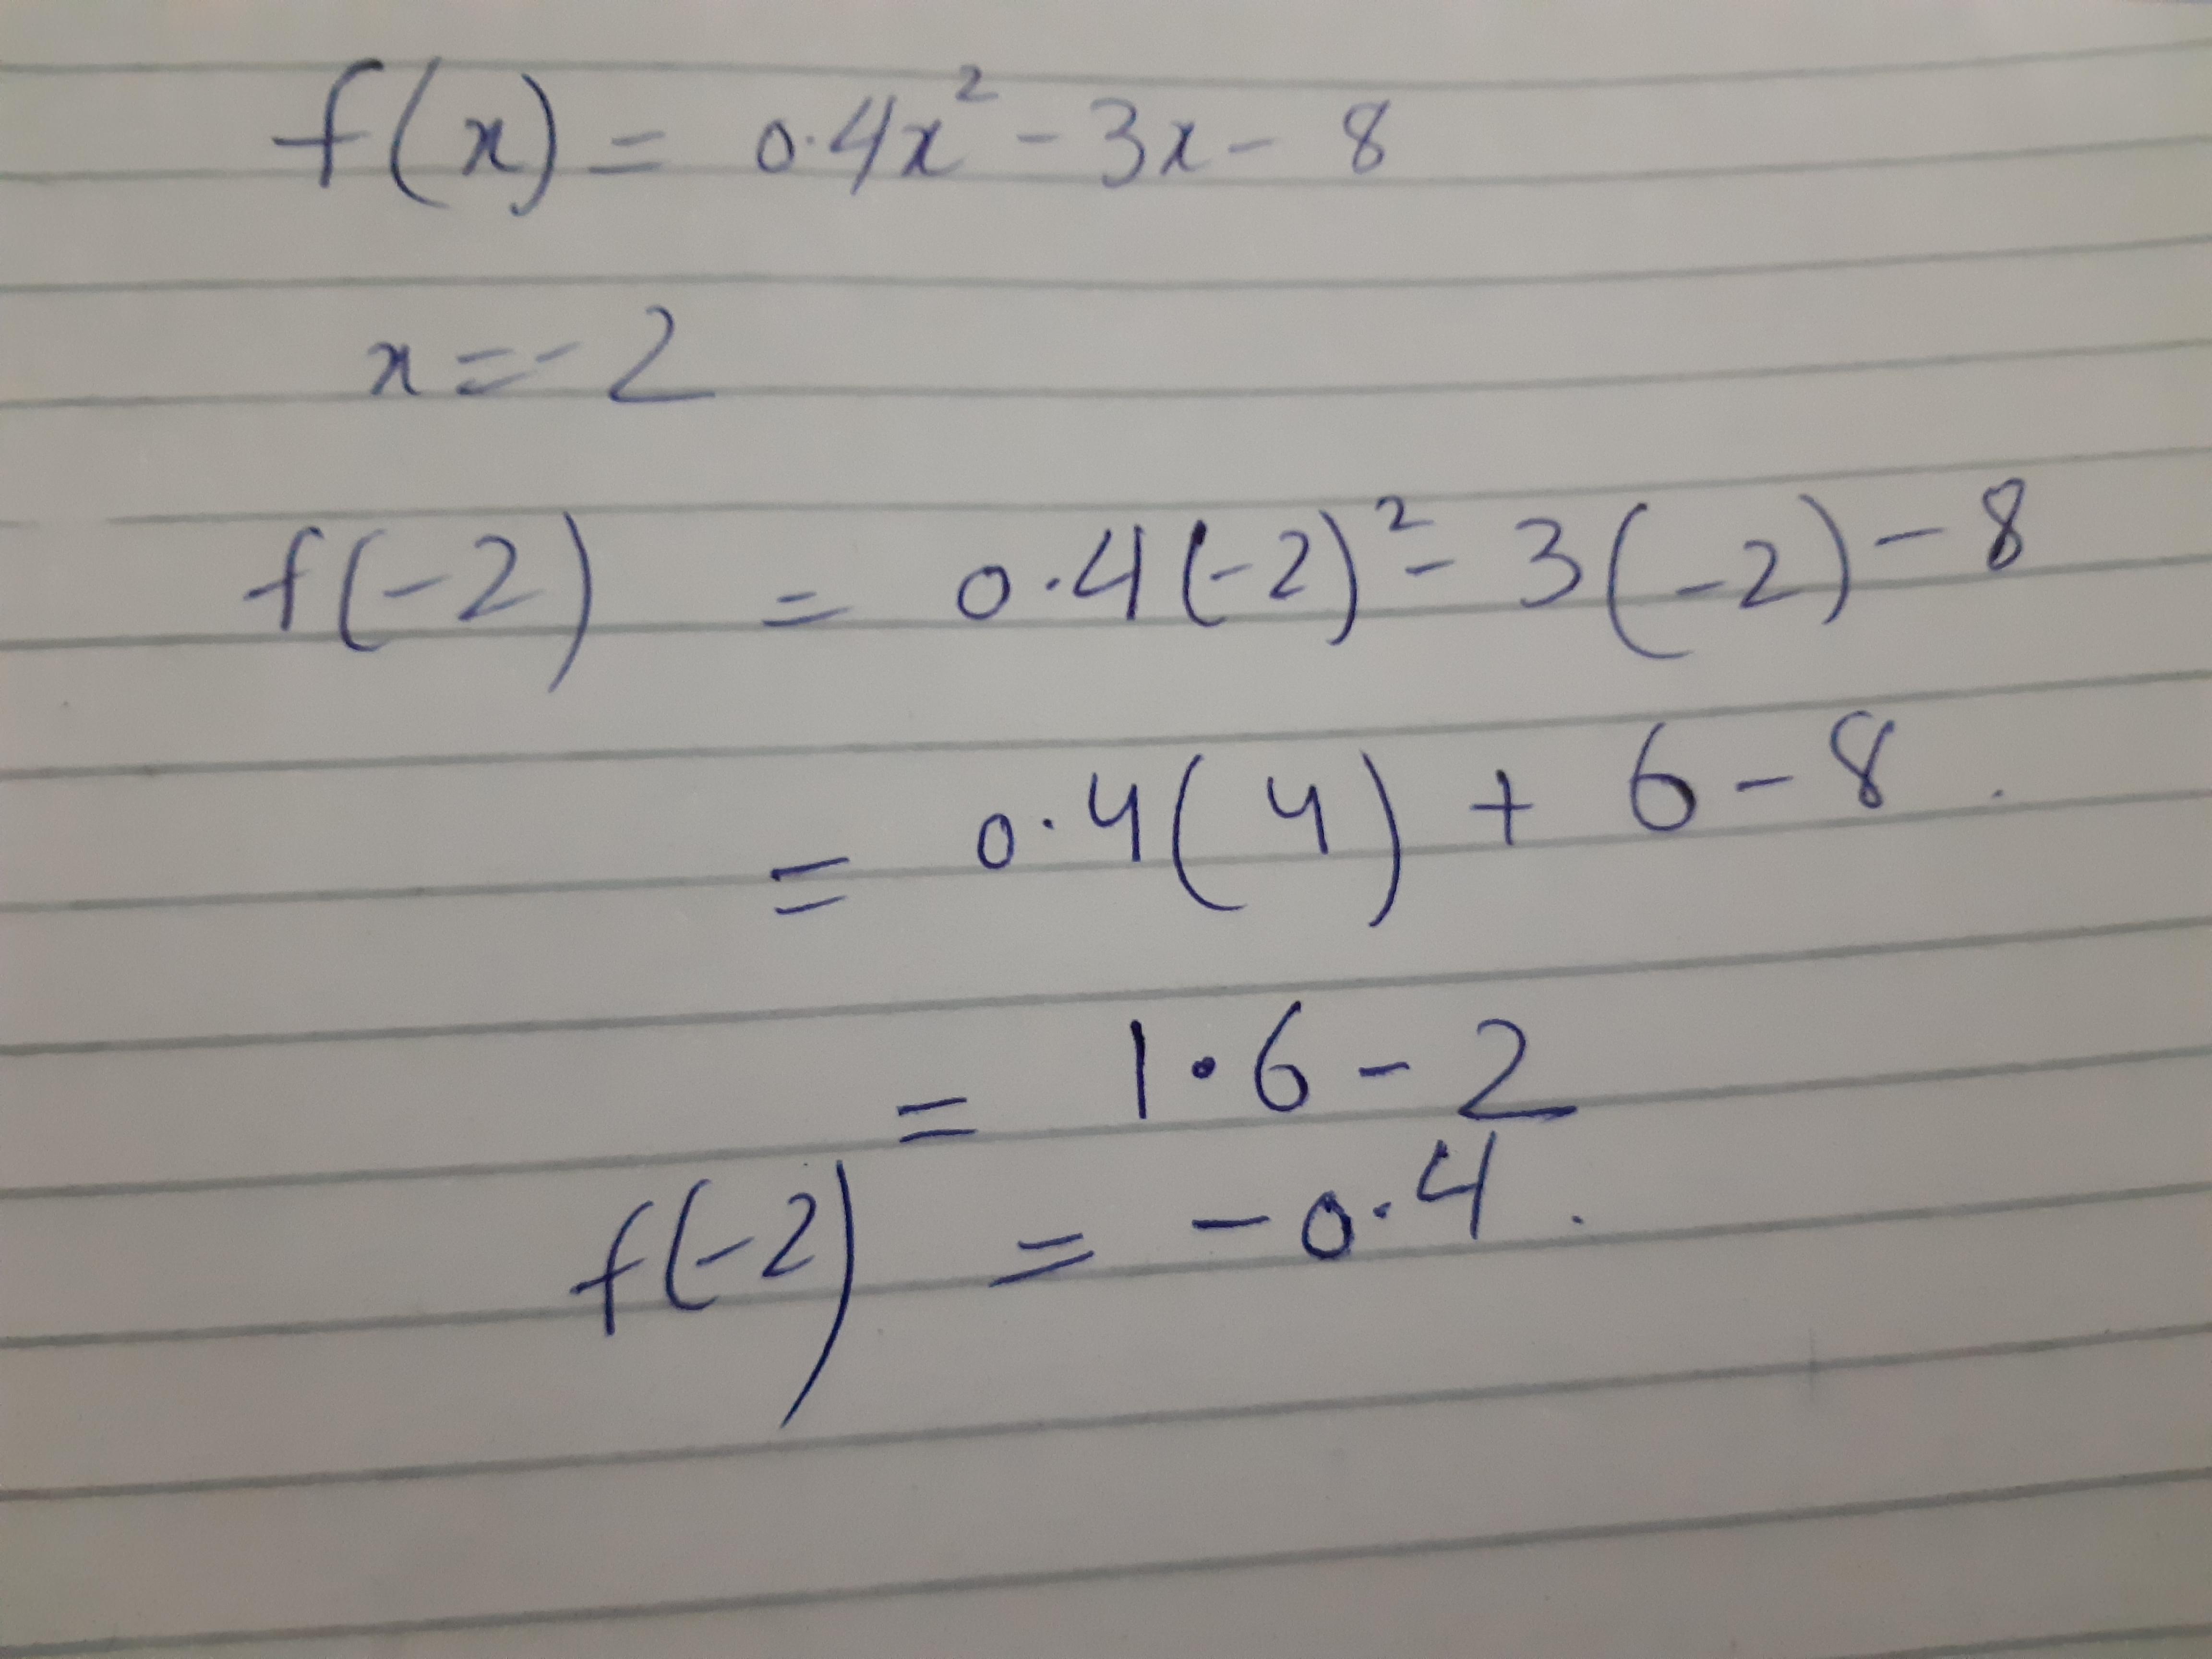 f(x) = 0.4x² - 3x - 8
x = -2
f(-2) = 0.4(-2)² - 3(-2) - 8
= 0.4(4) + 6 - 8.
= 1.6 - 2
f(-2) = -0.4.